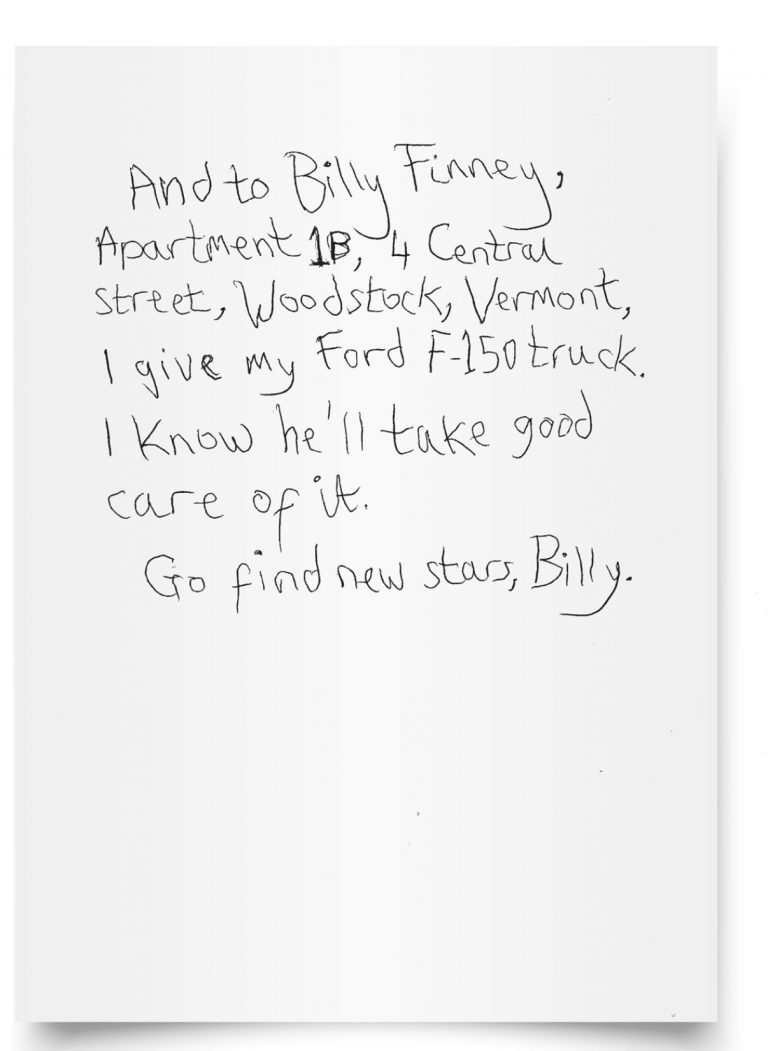 And to Billy Finney,
Apartment 1B, 4 Central
Street, Woodstock, Vermont,
I give my Ford F-150 truck.
I know he'll take good
care of it.
Go find new stars, Billy.